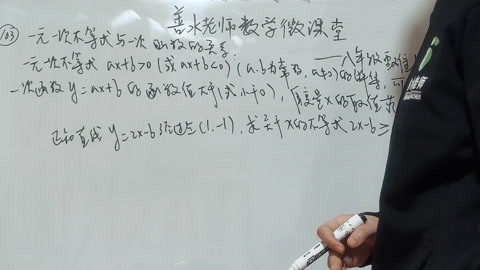 善水老师数学微课堂
103 一元一次不等式与一次函数的关系:
——八年级
一元一次不等式 ax+b>0 (或 ax+b<0) (a,b为常数, a≠0) 的
一次函数 y=ax+b 的函数值大于(或小于)0, 的取值
已知直线 y=2x-b 经过点 (1,-1), 求关于x的不等式 2x-b≥